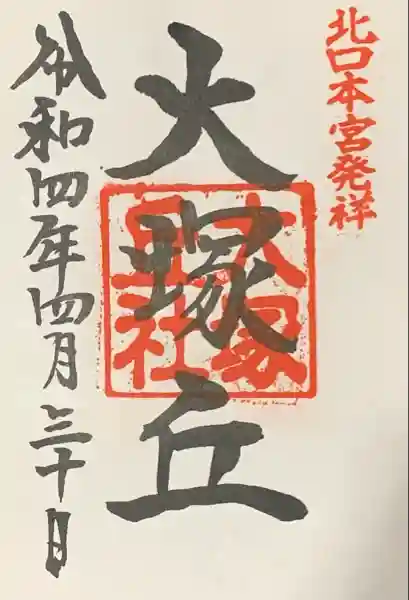 北口本宮発祥
大塚丘
大塚
丘社
令和四年四月三十日